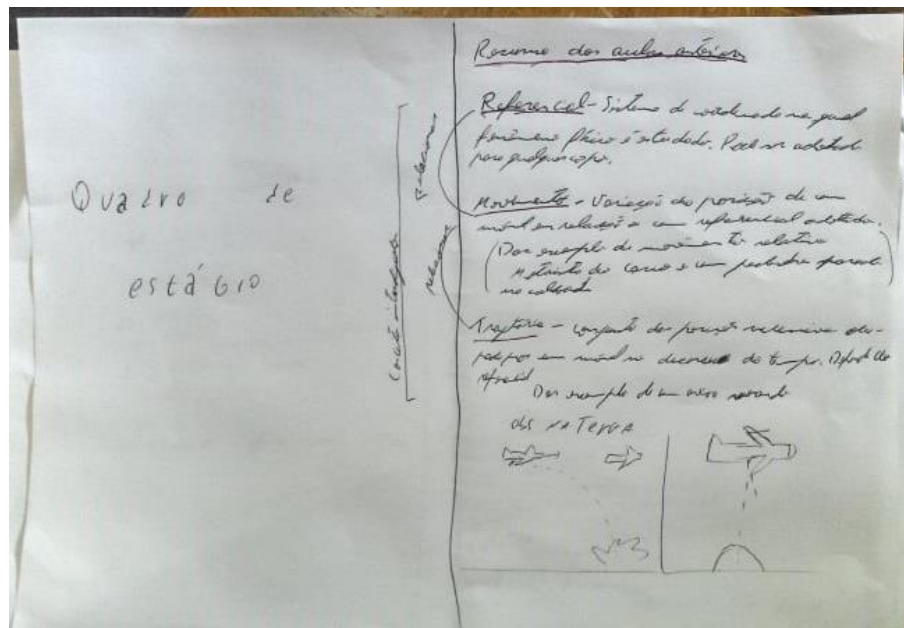 Quadro de
estágio
relacionar
relacionar
Resumo das aulas anteriores
Referencial - Sistema de coordenadas na qual
fenômeno físico é estudado. Pode ser adotado
para qualquer corpo.
Movimento - Variação da posição de um
móvel em relação a um referencial adotado.
(Dar exemplo de movimento relativo
Motorista do carro e um pedestre parado
na calçada)
Trajetória - conjunto das posições sucessivas ocu-
padas por um móvel no decorrer do tempo. Depende do
referencial
Dar exemplo de um avião voando
obs na Terra